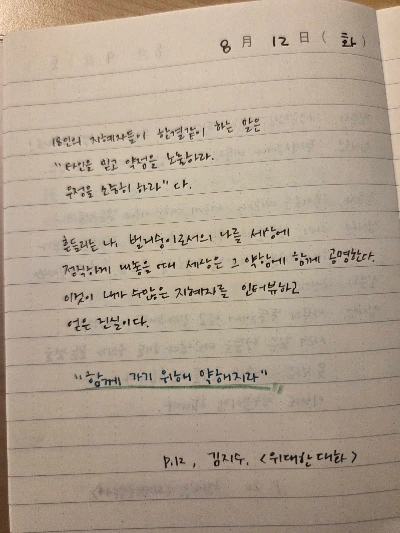 8 月 12 日 ( 화 )
18인의 지혜자들이 한결같이 하는 말은
"타인을 믿고 약점을 노출하라.
우정을 소중히 하라" 다.
흔들리는 나, 벌거숭이로서의 나를 세상에
정직하게 내놓을 때 세상은 그 약함에 함께 공명한다.
이것이 내가 수많은 지혜자를 인터뷰하고
얻은 진실이다.
"함께 가기 위해 약해지라"
p.12, 김지수, <위대한 대화>